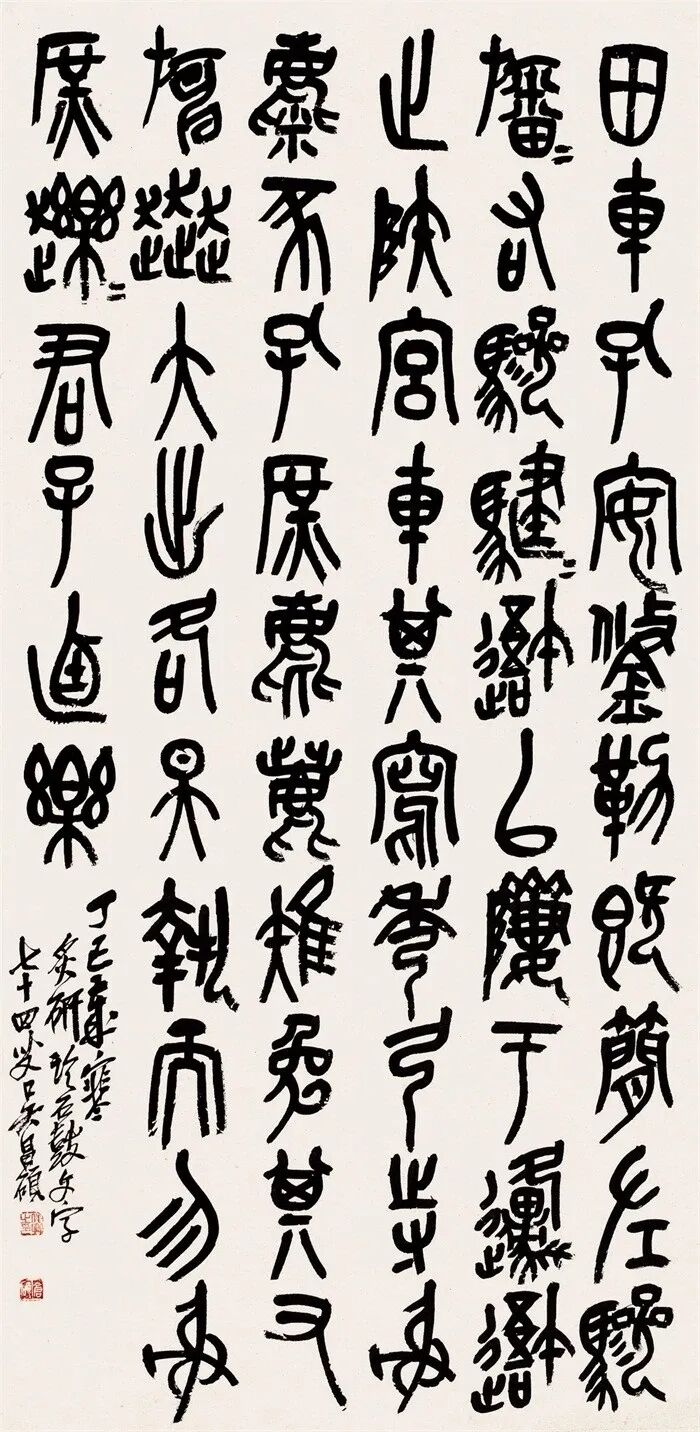 田車孔安鋚勒既簡左驂
旛=右驂騝=𨖍以隮于邍𨖍
止陝宮車其寫秀弓寺射
麋豕孔庶麀鹿雉兔其又
大出各昊執而勿射
庶趮=君子逌樂
丁巳歲寒
炙研臨石鼓文字
七十四叟吳昌碩